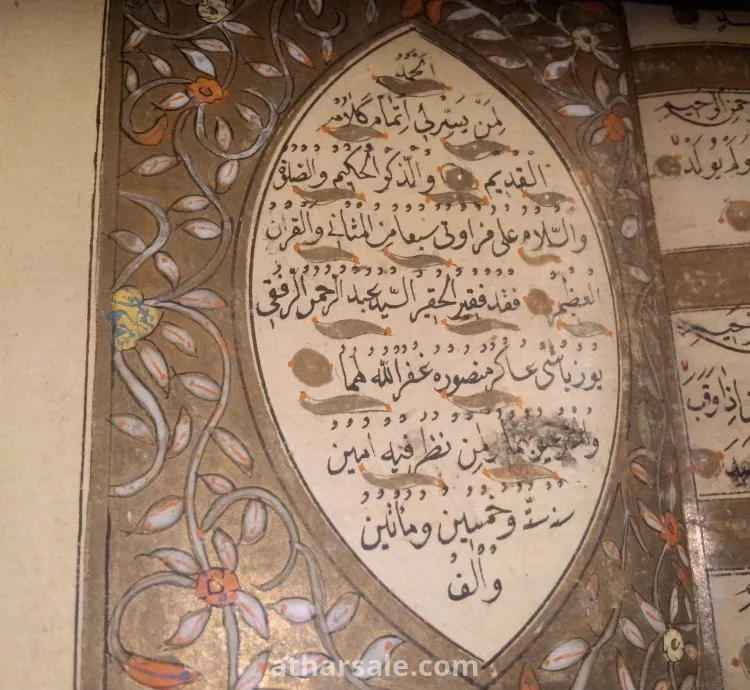 الحمد
لمن يسر لي إتمام كلامه
القديم والذكر الحكيم والصلوة
والسلام على من اوتي سبعا من المثاني والقران
العظيم فقد فقير الحقير السيد عبد الرحمن الرفقي
يوزباشئ عساكر منصوره غفر الله لهما
ولمن نظر فيه امين
سنة ستة وخمسين ومأتين
وألف
حمن الرحيم
ولم يولد
اذا وقب
atharsale.com